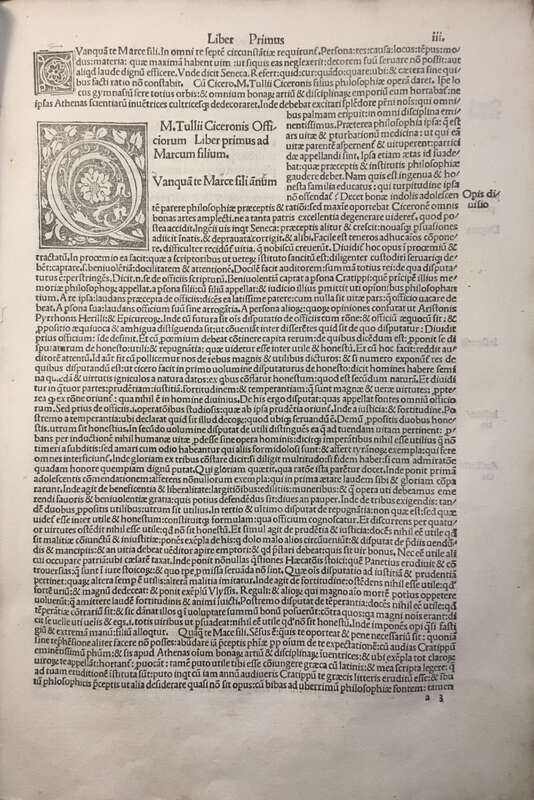 Liber Primus
iii.
Vanquā te Marce fili. In omni re septē circunstātiæ requirunť. Persona: res: causa: locus: tēpus: mo/
dus: materia: quæ maximā habent uim: ut siquis eas neglexerit: decorem suū seruare nō possit: aut
aliqd laude dignū efficere. Vnde dicit Seneca. Refert: quid: cur: quādo: quare: ubi: & cætera sine qui
bus facti ratio nō constabit. Cū Cicero. M. Tullii Ciceronis filius philosophiæ operā daret. Ipse lo
cus gymnasiū fere totius orbis: & omnium bonaꝝ artiū & disciplinaꝝ emporiū eum hortabať: ne
ipsas Athenas scientiarū inuētrices cultricesꝗ dedecoraret. Inde debebat excitari splēdore pēni nois: qui omni/
bus palmam eripuit: in omni disciplina emi
nentissimus. Præterea philosophia ipsa: q̄ est
ars uitæ & pturbationū medicina: ut qui eā
uitæ parentē aspernenť & uituperent: parrici
dæ appellandi sint. Ipsa etiam ætas id suade/
bat: quæ præceptis & institutis philosophiæ
gaudere debet. Nam quis est ingenua & ho/
nesta familia educatus: qui turpitudine ipsa
nō offendať? Decet bonæ indolis adolescen
M. Tullii Ciceronis Offi
ciorum Liber primus ad
Marcum filium.
Vanquā te Marce fili ānum
Opis di
uisio
tē parere philosophiæ præceptis & ratiōi: sed maxíe oportebat Ciceronē omnis
bonas artes amplecti. ne a tanta patris excellentia degenerare uidereť. quod po/
stea accidit. Ingeii uis inqt Seneca: præceptis aliťur & crescit: nouasꝗ psuasiones
adiicit inatis, & deprauata corrigit, & alibi, Facile est teneros adhuc aios cōpone/
re, difficulter reciduť uitia, q̄ nobiscū creuerūt. Diuidit hoc opus ī proœmiū &
tractatū, In proœmio ea facit: quæ a scriptoribus ut uetere īstituto sancitū est: diligenter custodiri seruariꝗ de/
bēt: captare. s. beniuolētiā: docilitatem & attentionē, Docilē facit auditorem: summā totius rei: de qua disputa/
turus ē: perstringēs. Dicit. n. se de officiis scripturū, Beniuolentiā captat a psona Cratippi: quē prīcipē illius me/
moriæ philosophoꝝ appellat. a psona filii: cū filiū appellat: & iudicio illius pmittit uti opinionibus philosophan
tium. A re ipsa: laudans præcepta de officiis: dicēs ea latissime patere: cum nulla sit uitæ pars: q̄ officio uacare de
beat. A psona sua: laudans officium suū sine arrogātia. A psona alioꝝ: quoꝝ opiniones confutat ut Aristonis
Pyrrhonis Herilli: & Epicureorū, Inde cū futura sit ois disputatio de officiis cum rōne: & officiū æquocū sit: &
ppositio æquiuoca & ambigua distīguenda sit: ut cōueniat inter disserētes quid sit de quo disputatur: Diuidit
prius officium: īde definit. Et cū pœmium debeat cōtinere capita rerum: de quibus dicēdum est: pponit se di
sputaturum de honesto: utili: & repugnātia: quæ uidetur esse inter utile & honestū. Et cū hoc facit: reddit au/
ditorē attentū. Id aūt fit cū pollicemur nos de rebus magnis & utilibus dicturos: & si numero exponuť res de
quibus disputandū est: ut cicero facit in primo uolumine disputaturus de honesto: dicit homines habere semi
na quædā & uirtutis igniculos a natura datos: ex qbus cōflatur honestum: quod est secūdum naturā. Et diuidi
tur in q̄tuor partes: prudētiam: iustitiā: fortitudinem: & temperantiam: q̄ sunt magnæ & ueræ uirtutes: ppte/
rea q̄ ex rōne oriunť: qua nihil ē in homine diuinius, De his ergo disputat: quas appellat fontes omniū officio
rum. Sed prius de officiis. i. operatōibus studiosis: quæ ab ipsa prudētia oriunť. Inde a iusticia: & fortitudine. Po
stremo a temperantia: ubi declarat quid sit illud decoꝝ: quod ubiꝗ seruandū ē.
bans per inductionē nihil humanæ uitæ pdesse sine opera hominis: dicitꝗ imperātibus nihil esse utilius q̄ nō
timeri a subditis: sed amari cum odio habeantur qui aliis formidolosi sunť: & affert tyrānoꝝ exempla: qui fere
omnes interfiunť. Inde gloriam ex tribus cōstare dicit: si diligit multitudo: si fidem habet: si cum admiratōe
quadam honore quempiam dignū putat. Qui gloriam quærit, qua ratōe ista parētur docet. Inde ponit primā
adolescentis cōmendationem: afferens nōnullorum exempla: qui in prima ætate laudem sibi & gloriā cōpa
rarunt. Inde agit de beneficentia & liberalitate: largitiōibus: ædificiis: muneribus: & q̄ opera uti debeamus eme
rendi fauoris & beniuolentiæ gratia: quis potius defendēdus sit: diues an pauper. Inde de tribus exigendis: tan/
dē duobus ppositis utilibus: utrum sit utilius, In tertio & ultimo disputat de repugnātia: non quæ est: sed quæ
uideť esse inter utile & honestum: constituitꝗ formulam: qua officium cognoscatur. Et discurrens per quatu/
or uirtutes ostēdit nihil esse utile: qd nō sit honestū. Et simul agit de prudētia & iusticia: docēs nihil eē utile: qd
sit malitiæ cōiunctū & iniustitiæ: ponēs exēpla de his: q dolo malo alios circueniūt: & disputat de pdiis uendū/
dis & mancipiis: & an uitia debeat uēditor apire emptori: & qd pstari debeat: quis sit uir bonus, Nec eē utile ali
cui occupare patriā: ubi cæsarē taxat. Inde ponit nōnullas q̄stiones Hæcatōis stoici: quē Panetius erudiuit & cō
trouersias: q̄ sunt ī iure stoicoꝝ: & quo tpe pmissa seruāda nō sint. Quæ ois disputatio ad iustitiā & prudentiā
pertinet: quaꝝ altera semp ē utilis: altera malitia imitatur. Inde agit de fortitudine: ostēdens nihil esse utile: qd
fortē uirū: & magnū dedeceat: & ponit exēplū Vlyssis. Reguli: & alioꝝ qui magno aio mortē potius oppetere
uoluerūt: q̄ amittere laudē fortitudinis & animi iuicti, Postremo disputat de tēperantia: docēs nihil eē utile: qd
tēperātiæ cōtrariū sit: & sic dānat illos q uoluptate summū bonū posuerūt: cōtra quos: ꝗa magni nois erant: dī
cit se uelle uti uelis & eqs. i. totis uiribus ut psuadeat: nihil eē utile qd nō sit honestū. Inde imponēs opi: quasi fasti
giū & extremā manū: filiū alloquť. Quāꝗ te Marce fili. Sēsus ē: quis te oporteat & pene necessariū sit: quoniā
sine repħēsione aliter facere nō posses: abūdare ī pceptis phiæ pp oium de te expectationē: cū audias Cratippū
eminētissimū phūm: & sis apud Athenas oium bonaꝝ artiū & disciplinaꝝ iuentrices: & ubi exēpla tot claroꝝ
uiroꝝ te appellāt: hortanť: puocāt: tamē puto utile tibi esse cōiungere græca cū latinis: & mea scripta legere: q
ad tuam eruditionē īstituta sūt: puto inqt cū iam annū audiueris Cratippū te græcis litteris eruditū esse: & ibu
tū philosophicis pceptis ut alia desiderate quasi nō sit opus: cū bibas ad uberrimū philosophiæ fontem: tamen
a 3